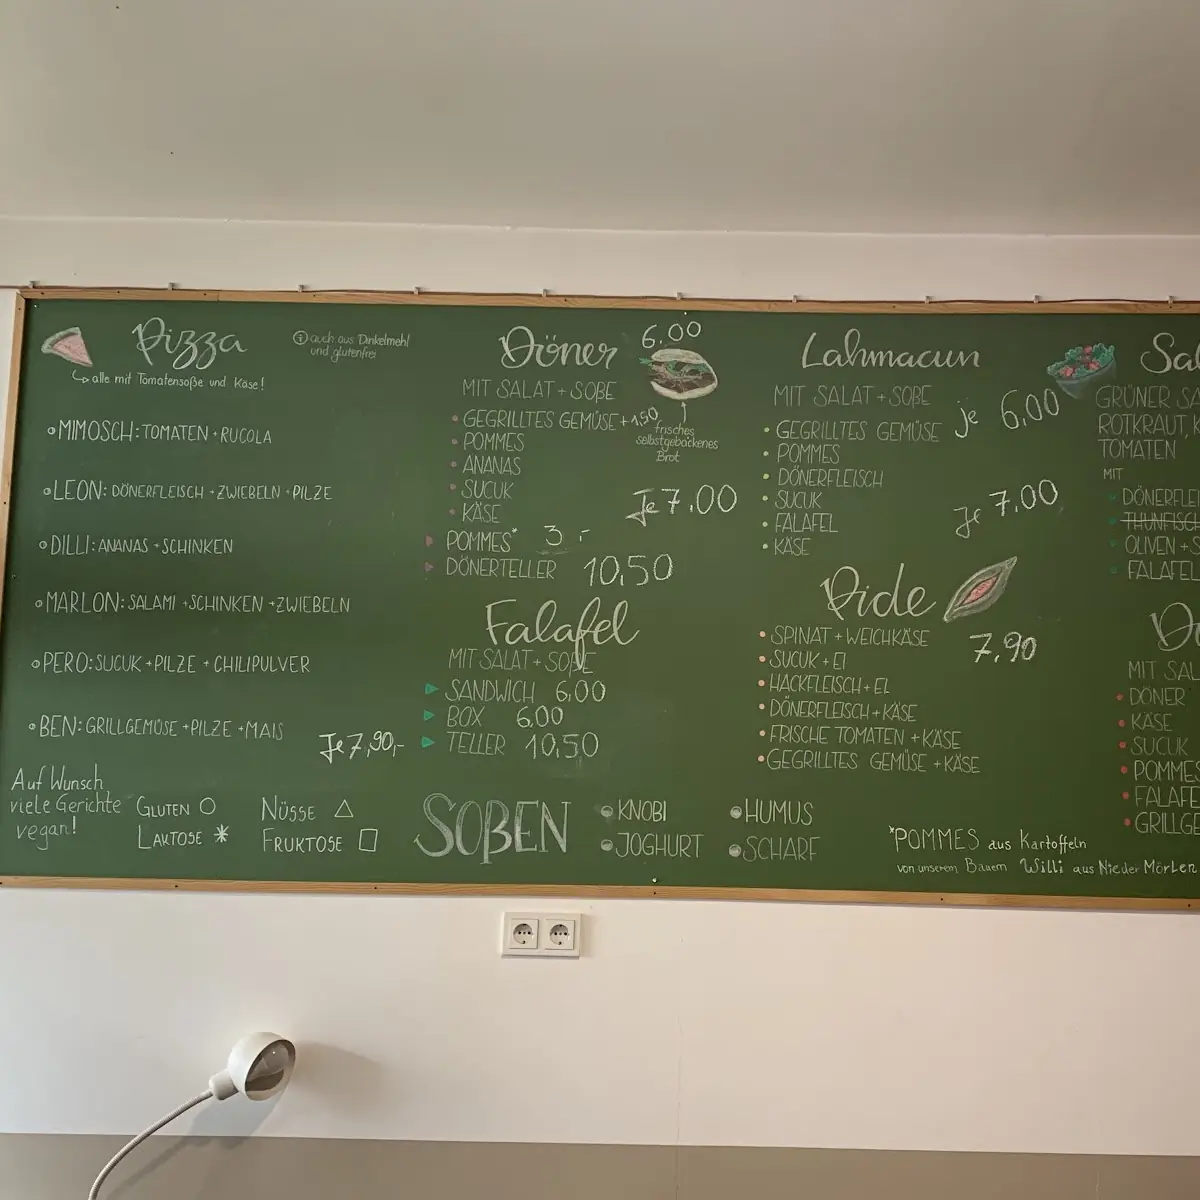 Pizza
ⓘ auch aus Dinkelmehl
und glutenfrei
↳ alle mit Tomatensoße und Käse!
MIMOSCH: TOMATEN + RUCOLA
LEON: DÖNERFLEISCH + ZWIEBELN + PILZE
DILLI: ANANAS + SCHINKEN
MARLON: SALAMI + SCHINKEN + ZWIEBELN
PERO: SUCUK + PILZE + CHILIPULVER
BEN: GRILLGEMÜSE + PILZE + MAIS
Je 7,90,-
Auf Wunsch
viele Gerichte
vegan!
GLUTEN ○
LAKTOSE *
NÜSSE △
FRUKTOSE □
Döner 6.00
MIT SALAT + SOßE
GEGRILLTES GEMÜSE +1,50
POMMES
ANANAS
SUCUK
KÄSE
frisches
selbstgebackenes
Brot
Je 7.00
POMMES* 3,-
DÖNERTELLER 10,50
Falafel
MIT SALAT + SOßE
SANDWICH 6,00
BOX 6,00
TELLER 10,50
SOßEN
KNOBI
JOGHURT
HUMUS
SCHARF
Lahmacun
MIT SALAT + SOßE
je 6,00
GEGRILLTES GEMÜSE
POMMES
DÖNERFLEISCH
SUCUK
FALAFEL
KÄSE
Je 7,00
Pide
7,90
SPINAT + WEICHKÄSE
SUCUK + EI
HACKFLEISCH + EI
DÖNERFLEISCH + KÄSE
FRISCHE TOMATEN + KÄSE
GEGRILLTES GEMÜSE + KÄSE
*POMMES aus Kartoffeln
von unserem Bauern Willi aus Nieder Mörlen
Sal
GRÜNER SA
ROTKRAUT, K
TOMATEN
MIT
DÖNERFLE
THUNFISC
OLIVEN + S
FALAFEL
MIT SAL
DÖNER
KÄSE
SUCUK
POMMES
FALAFE
GRILLGE